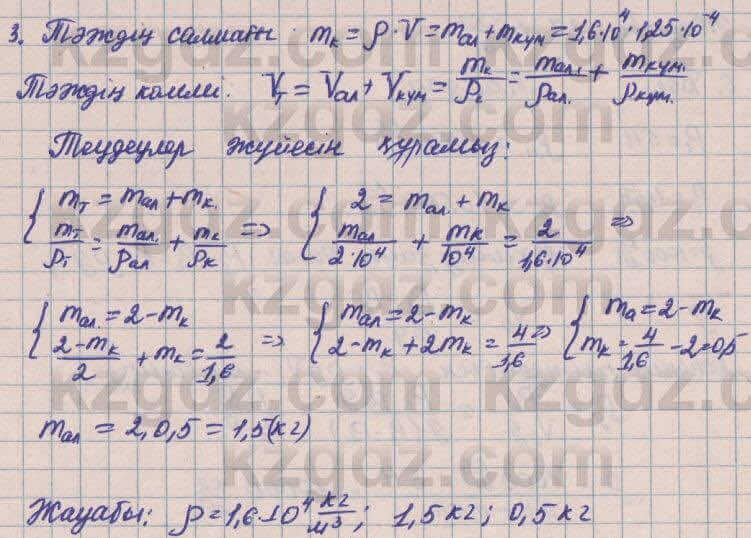 3. Тәждің салмағы: mк = ρ·V = mал + mкүм = 1,6·10⁴·1,25·10⁻⁴
Тәждің көлемі: Vт = Vал + Vкүм = mк/ρк = mал./ρал. + mкүм./ρкүм.
Теңдеулер жүйесін құрамыз:
{ mт = mал + mк. ; mт/ρт = mал./ρал + mк/ρк => { 2 = mал. + mк ; mал/2·10⁴ + mк/10⁴ = 2/1,6·10⁴ =>
{ mал. = 2 - mк ; 2-mк/2 + mк = 2/1,6 => { mал = 2 - mк ; 2 - mк + 2mк = 4/1,6 => { mа = 2 - mк ; mк = 4/1,6 - 2 = 0,5
mал = 2,0,5 = 1,5(кг)
Жауабы: ρ = 1,6·10⁴ кг/м³; 1,5 кг; 0,5 кг
kzgdz.com